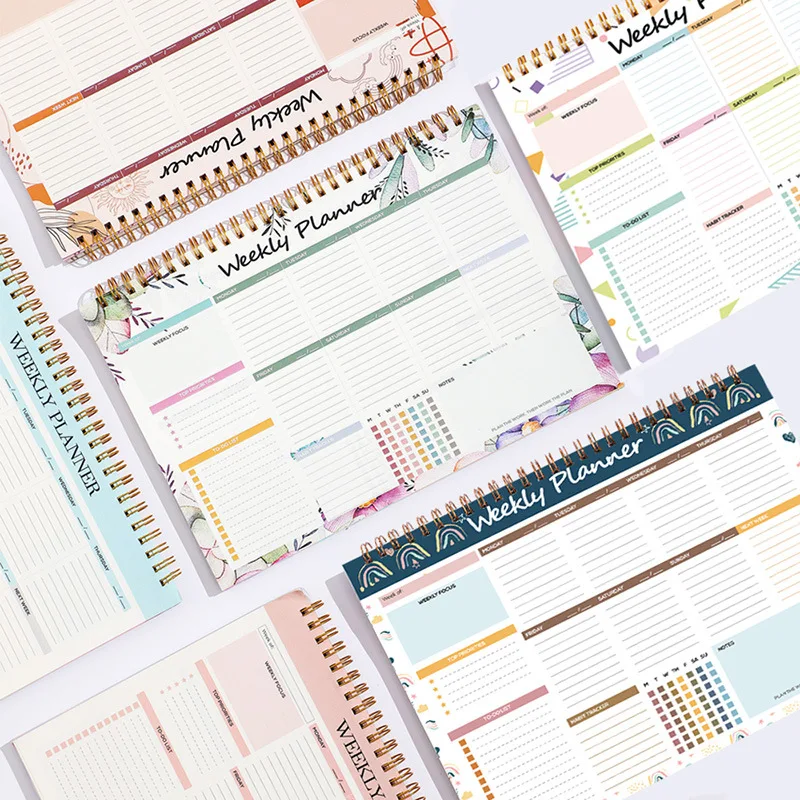 WEEKLY FOCUS
SATURDAY
SUNDAY
NEXT WEEK
MONDAY
TUESDAY
WEDNESDAY
THURSDAY
Weekly Planner
Weekly Planner
MONDAY
TUESDAY
Week of:
WEEKLY FOCUS
FRIDAY
SATURDAY
TOP PRIORITIES
TO-DO LIST
HABIT TRACKER
M T W
Weekly Planner
MONDAY
TUESDAY
WEDNESDAY
THURSDAY
WEEKLY FOCUS
FRIDAY
SATURDAY
SUNDAY
TOP PRIORITIES
TO-DO LIST
M T W TH F SA SU
NOTES
PLAN THE WORK, THEN WORK THE PLAN
WEEKLY PLANNER
TUESDAY
WEDNESDAY
THURSDAY
NEXT WEEK
Weekly Planner
MONDAY
TUESDAY
WEDNESDAY
THURSDAY
Week of:
WEEKLY FOCUS
FRIDAY
SATURDAY
SUNDAY
NEXT WEEK
TOP PRIORITIES
TO-DO LIST
HABIT TRACKER
M T W TH F SA SU
NOTES
PLAN THE W
Week of:
WEEKLY FOCUS
TOP PRIORITIES
TO-DO LIST
MONDAY
FRIDAY
WEEKLY